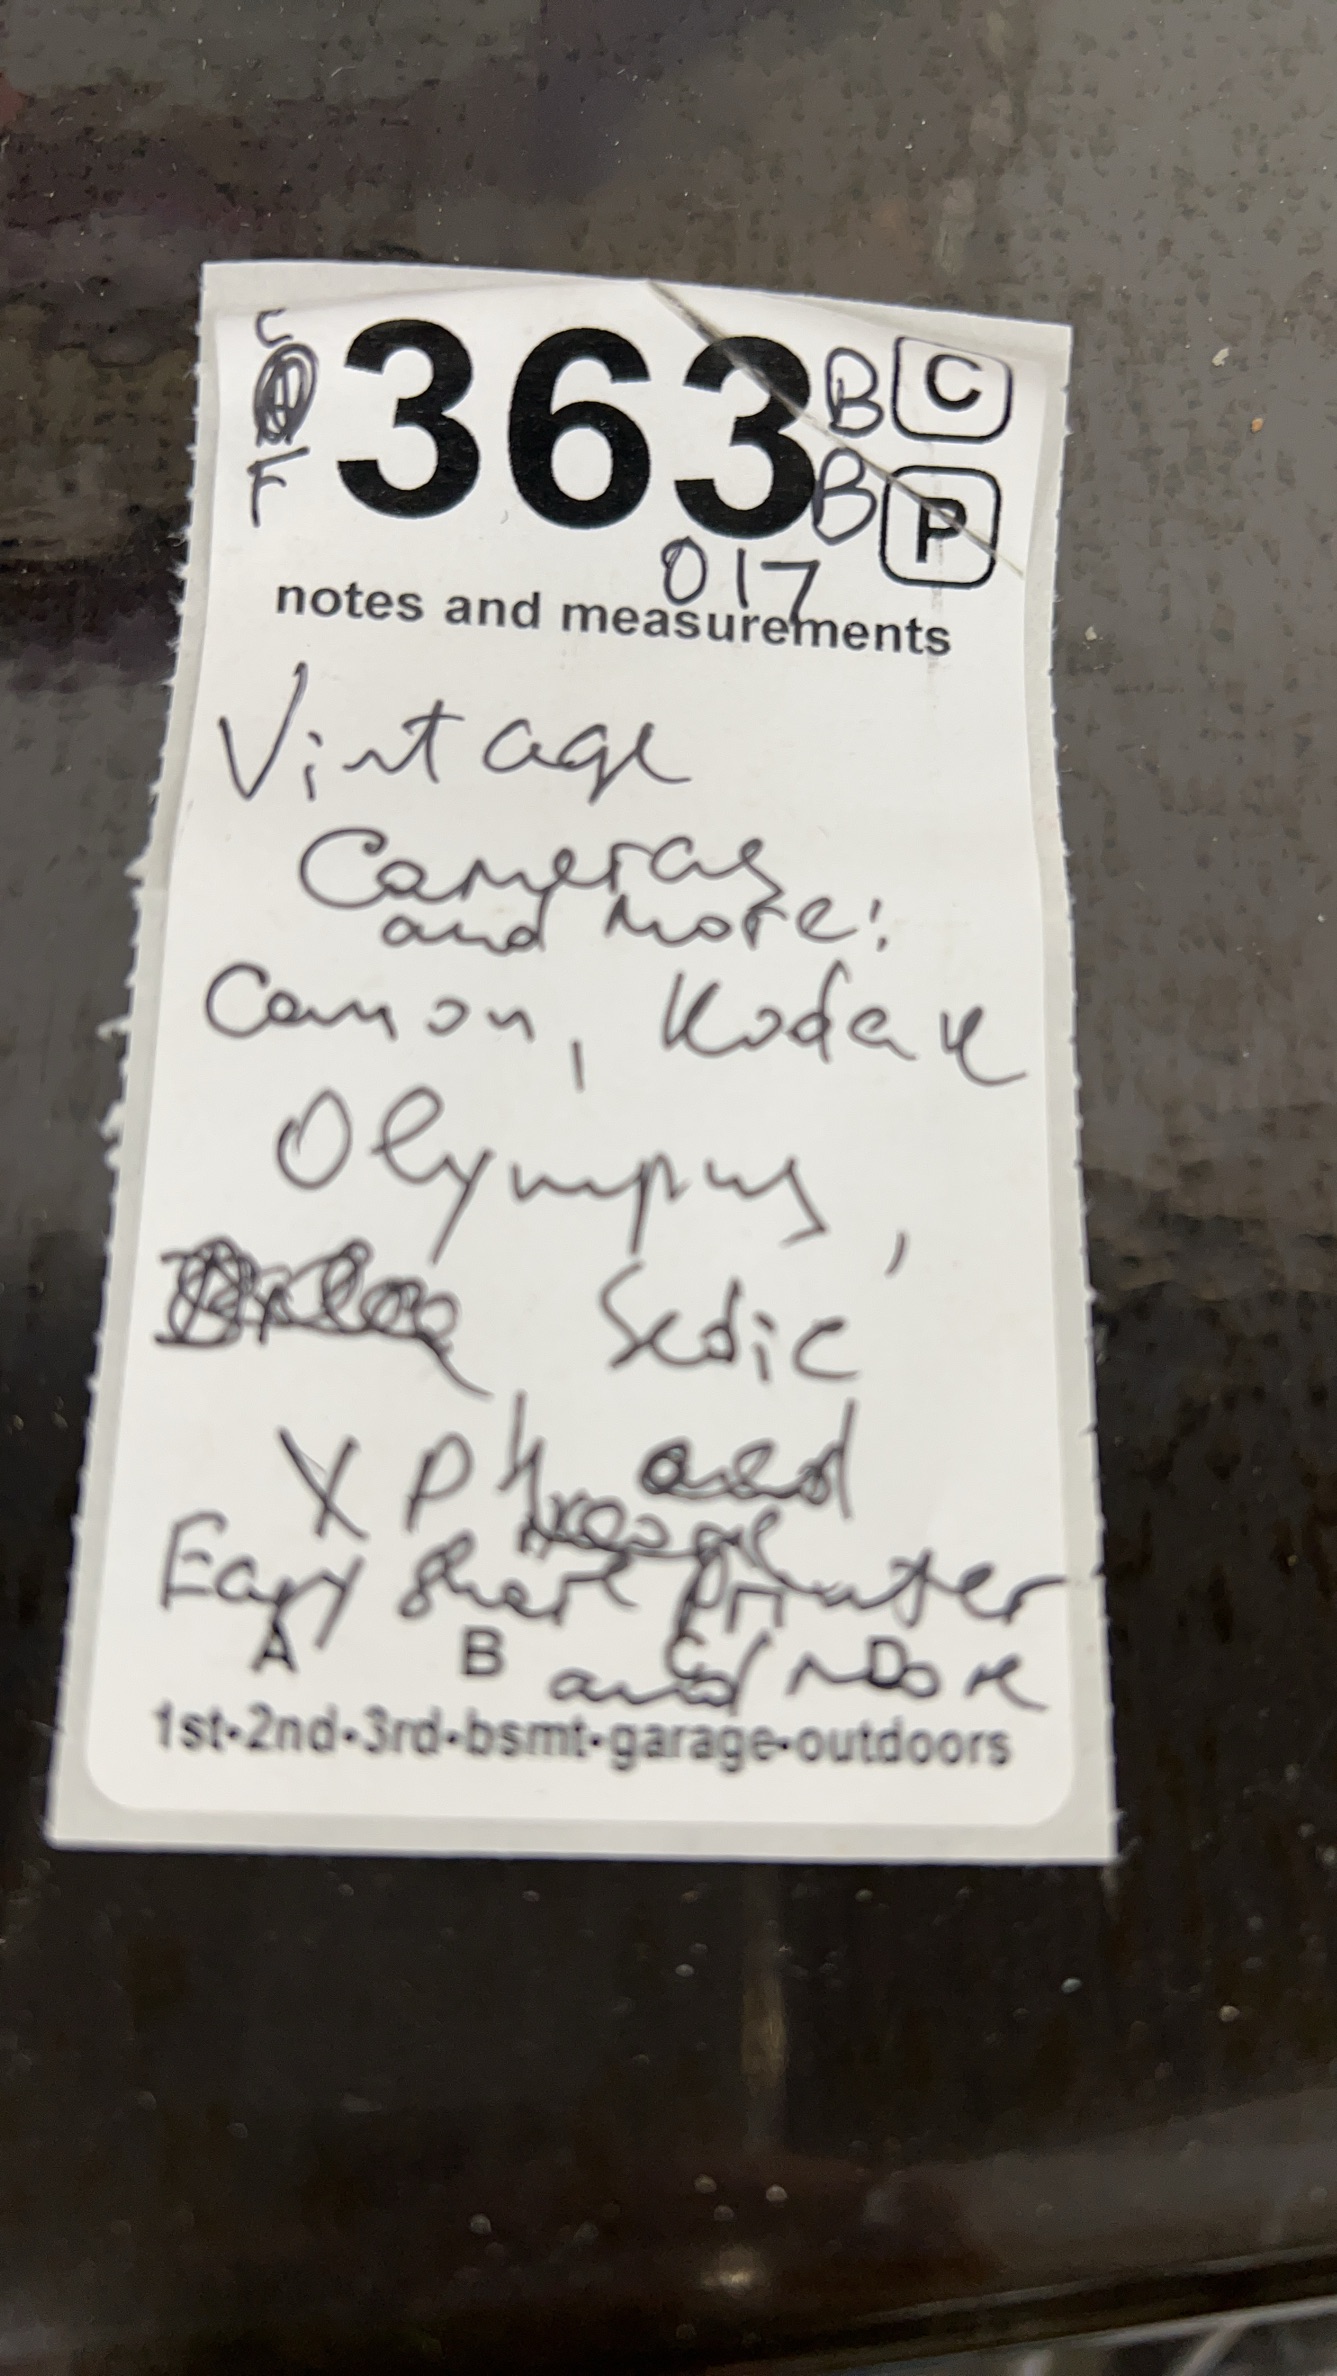 C
363 B C
F B P
017
notes and measurements
Vintage
Cameras
and More:
Canon, Kodak
Olympus,
Sedic
XP4 and
Easy Share Printer
and More
A B C D
1st-2nd-3rd-bsmt-garage-outdoors